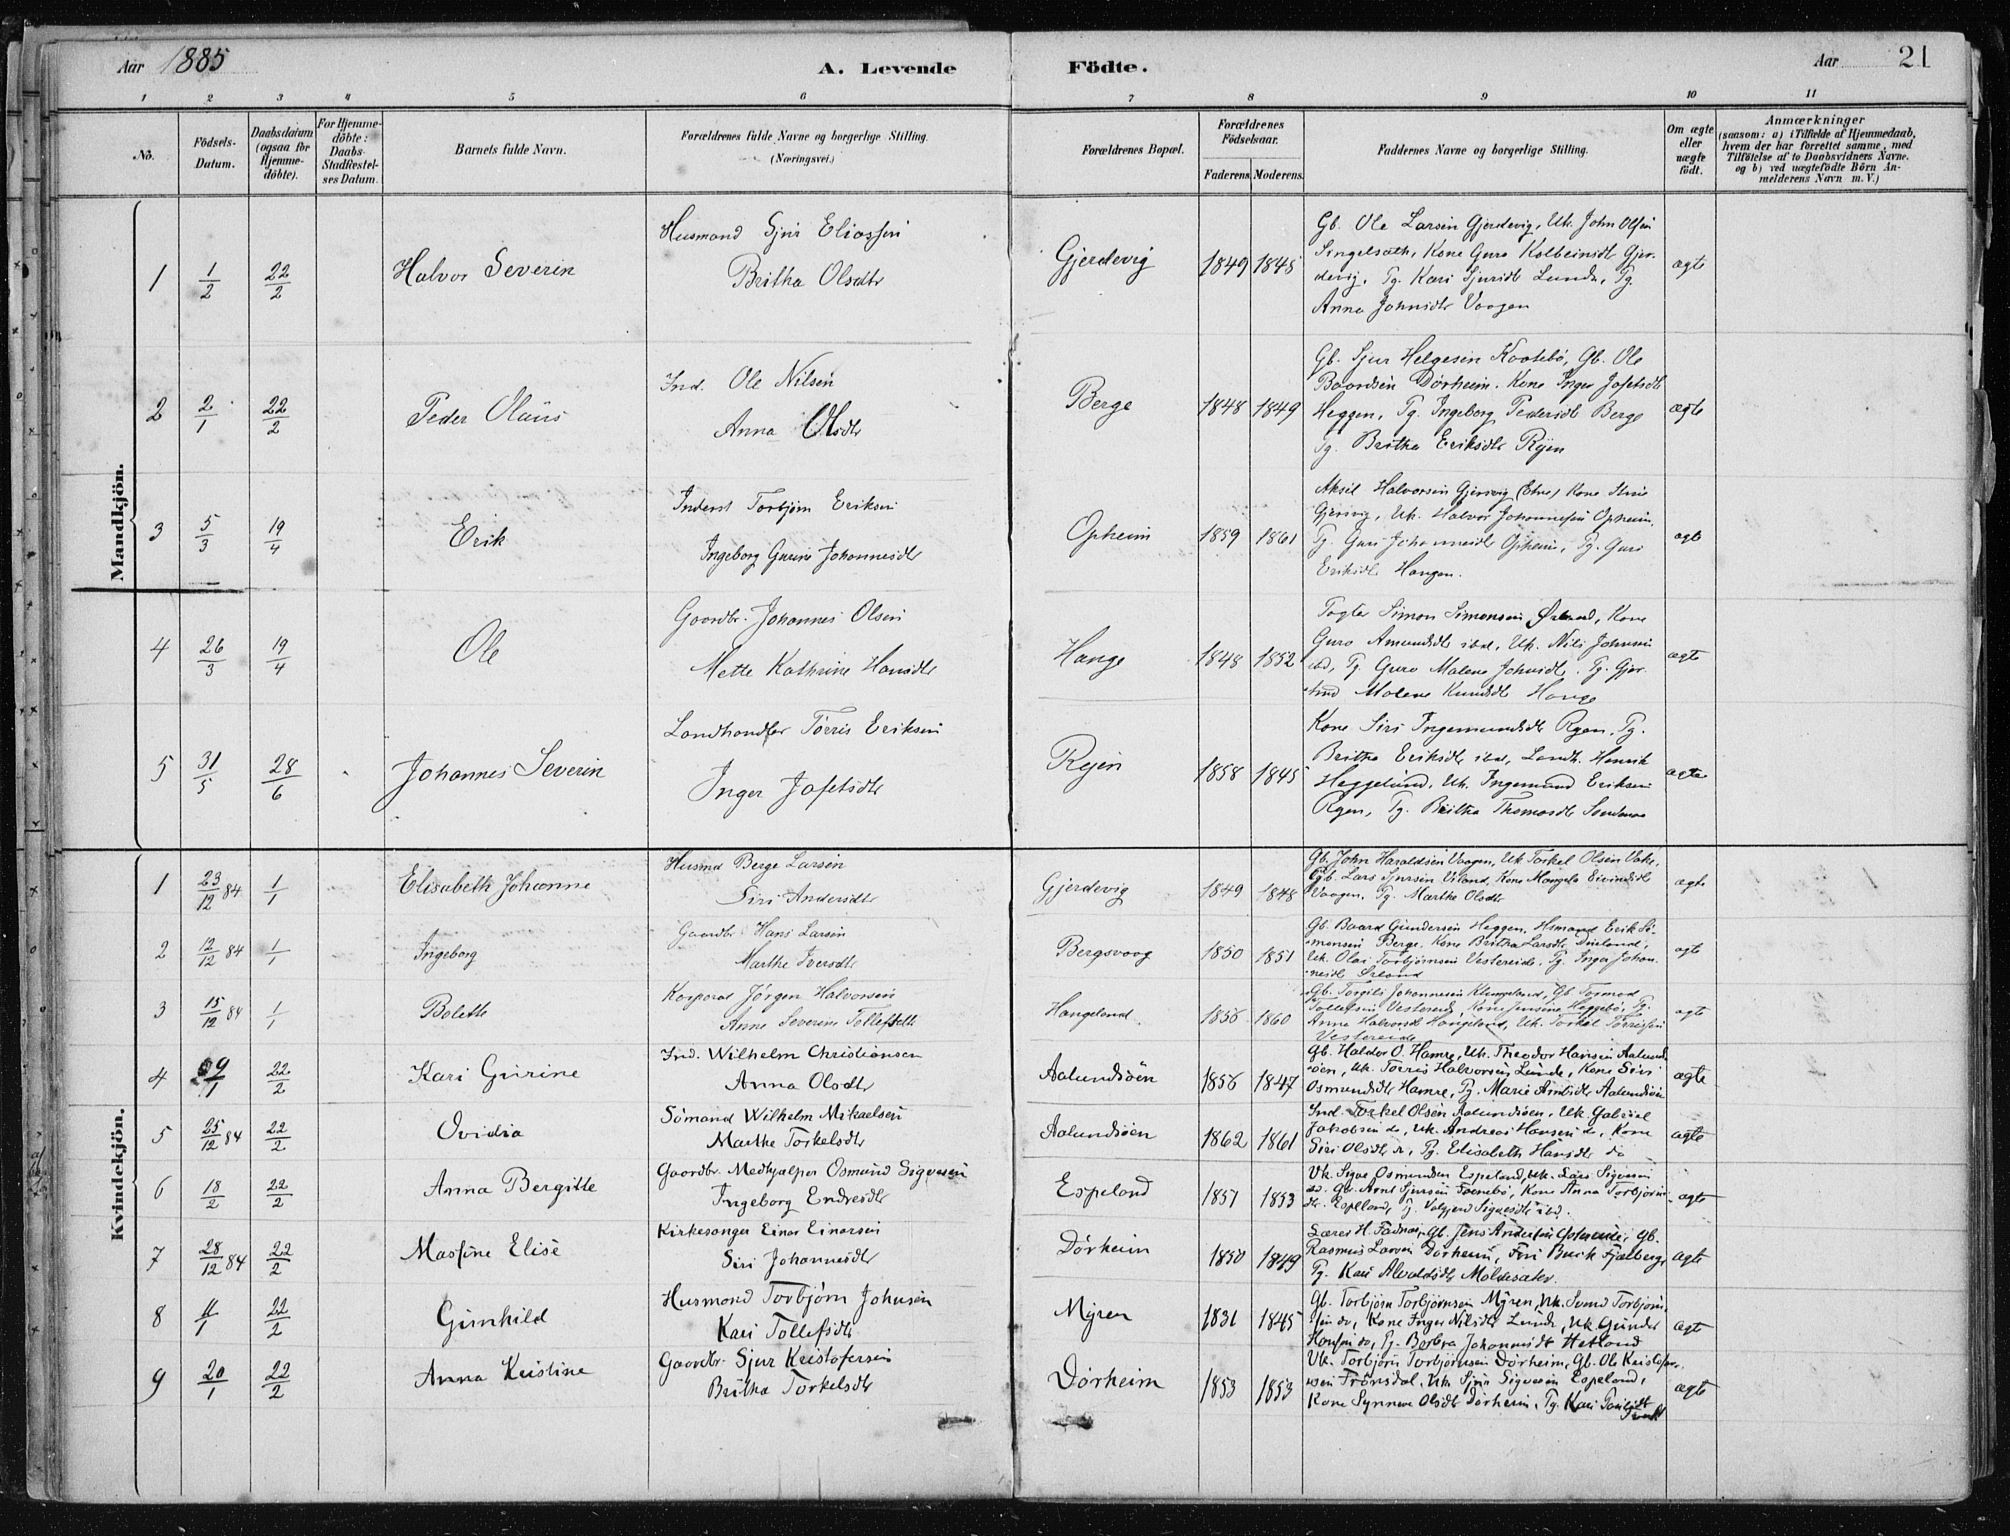 Aar 1885
A. Levende Födte.
Aar 21
1 2 3 4 5 6 7 8 9 10 11
No.
Födsels-Datum.
Daabsdatum (ogsaa for Hjemme-döbte).
For Hjemme-döbte: Daabs-Stadfæstel-ses Datum.
Barnets fulde Navn.
Forældrenes fulde Navne og borgerlige Stilling. (Næringsvei.)
Forældrenes Bopæl.
Forældrenes Födselsaar.
Faderens Moderens
Faddernes Navne og borgerlige Stilling.
Om ægte eller uægte födt.
Anmærkninger
(saasom: a) i Tilfælde af Hjemmedaab, hvem der har forrettet samme, med Tilföielse af to Daabsvidners Navne. og b) ved uægtefödte Börn An-melderens Navn m. V.)
Mandkjön.
1 1/2 22/2 Halvor Severin
Husmand Sjur Eliassen
Britha Olsdtr
Gjerdevig 1849 1845
Gb. Ole Larsen Gjerdevig, Uk. John Olsen
Singelsath, Kone Guro Kolbeinsdtr Gjer-
devig, Pg. Kari Sjursdtr Lunde, Pg.
Anna Johnsdtr Vaagen
ægte
2 2/1 22/2 Peder Olaus
Ind. Ole Nilsen
Anna Olsdtr
Berge 1848 1849
Gb. Sjur Helgesen Kaatebö, Gb. Ole
Baardsen Dörheim. Kone Inger Josefsdtr
Heggen, Pg. Ingeborg Pedersdtr Berge
Pg. Britha Eriksdtr Ryen
ægte
3 5/3 19/4 Erik
Inderst Torbjörn Eriksen
Ingeborg Gurine Johannesdtr
Opheim 1859 1861
Aksel Halvorsen Gjersvig (Etne) Kone
Gjersvig, Uk. Halvor Johannesen Opheim,
Pg. Guri Johannesdtr Opheim, Pg. Guri
Eriksdtr Haugen.
ægte
4 26/3 19/4 Ole
Gaardbr. Johannes Olsen
Mette Kathrine Hansdtr
Hauge 1848 1852
Fogter Simon Simonsen, Kone
Guro Amundsdtr ibd, Uk. Nils Johnsen
ibd, Pg Guro Malene Johnsdtr. Pg. Gjer-
trud Malene Knudsdtr Hauge
ægte
5 31/5 28/6 Johannes Severin
Landhandler Törris Eriksen
Inger Josefsdtr
Ryen 1858 1845
Kone Siri Ingemundsdtr Ryen. Pg.
Britha Eriksdtr ibd, Landh. Henrik
Heggelund, Uk. Ingemund Eriksen
Ryen, Pg. Britha Thomasdtr
ægte
Kvindekjön.
1 23/12 84 1/1 Elisabeth Johanne
Husmd Berge Larsen
Siri Andersdtr
Gjerdevig 1849 1848
Gb. John Haraldsen Vaagen, Uk Torkel Olsen Vake,
Gb. Lars Sjursen Viland, Kone Mangela Eivindsdtr
Vaagen, Pg. Marthe Olsdtr
ægte
2 12/12 84 1/1 Ingeborg
Gaardbr Hans Larsen
Marthe Iversdtr
Bergsvaag 1850 1851
Gb. Baard Gundersen Heggen. Hsmand Erik Si-
monsen Berge. Kone Britha Larsdtr,
Uk. Olai Torbjörnsen Vestereide. Pg. Inger Johan-
nesdtr
ægte
3 15/12 84 1/1 Bolette
Korporal Jörgen Halvorsen
Anne Severine Tollefsdtr
Haugeland 1856 1860
Gb. Torgils Johannesen Klungeland, Gb Tormod
Tollefsen Vestereid, Kone Jensine Heggebö, Pg.
Anna Halvorsdtr Haugeland, Uk. Torkel Törrissen
Vestereide
ægte
4 9/1 22/2 Kari Gurine
Ind. Wilhelm Christiansen
Anna Olsdtr
Aalundsöen 1856 1847
Gb. Haldor O. Hamre, Uk. Theodor Hansen Aalund-
söen, Uk. Törris Halvorsen Lunde, Kone Siri
Osmundsdtr Hamre, Pg. Marie Aalundsöen
ægte
5 25/12 84 22/2 Ovidia
Sömand Wilhelm Mikaelsen
Marthe Torkelsdtr
Aalundsöen 1862 1861
Ind. Torkel Olsen Aalundsöen, Uk. Gabriel
Jakobsen do, Uk. Andreas Hansen do, Kone
Siri Olsdtr, Pg. Elisabeth Hansdtr do
ægte
6 18/2 22/2 Anna Bergitte
Gaardbr. Medhjælper Osmund Sigvesen
Ingeborg Endresdtr
Espeland 1857 1853
Uk. Sigve Osmundsen Espeland, Uk. Lars Sigvesen
do. Gb. Arnt Sjursen Tornebö, Kone Anna Torbjörns-
dtr. Espeland, Pg. Valgjerd Sigvesdtr ibd.
ægte
7 28/12 84 22/2 Massine Elise
Kirkesanger Einar Einarsen
Siri Johannesdtr
Dörheim 1850 1849
Lærer H. Fadnæs, Gb. Jens Andersen, Gb.
Rasmus Larsen Dörheim, Frk Buck Fjelberg,
Pg. Kari Alvaldsdtr Moldesæter.
ægte
8 11/1 22/2 Gunhild
Husmand Torbjörn Johnsen
Kari Tollefsdtr
Myren 1831 1845
Gb. Torbjörn Torbjörnsen Myren, Uk. Svend Torbjörn-
sen do, Kone Inger Nilsdtr Lunde, Uk. Gunder
Hansen do, Pg. Barbra Johannesdt Hetland
ægte
9 20/1 22/2 Anna Kristine
Gaardbr. Sjur Kristofersen
Britha Torkelsdtr
Dörheim 1853 1853
Uk. Torbjörn Torbjörnsen Dörheim, Gb. Ole Kristofer-
sen Frönsdal, Uk Sjur Sigvesen Espeland,
Kone Synneve Olsdtr Dörheim, Pg. Kari
ægte